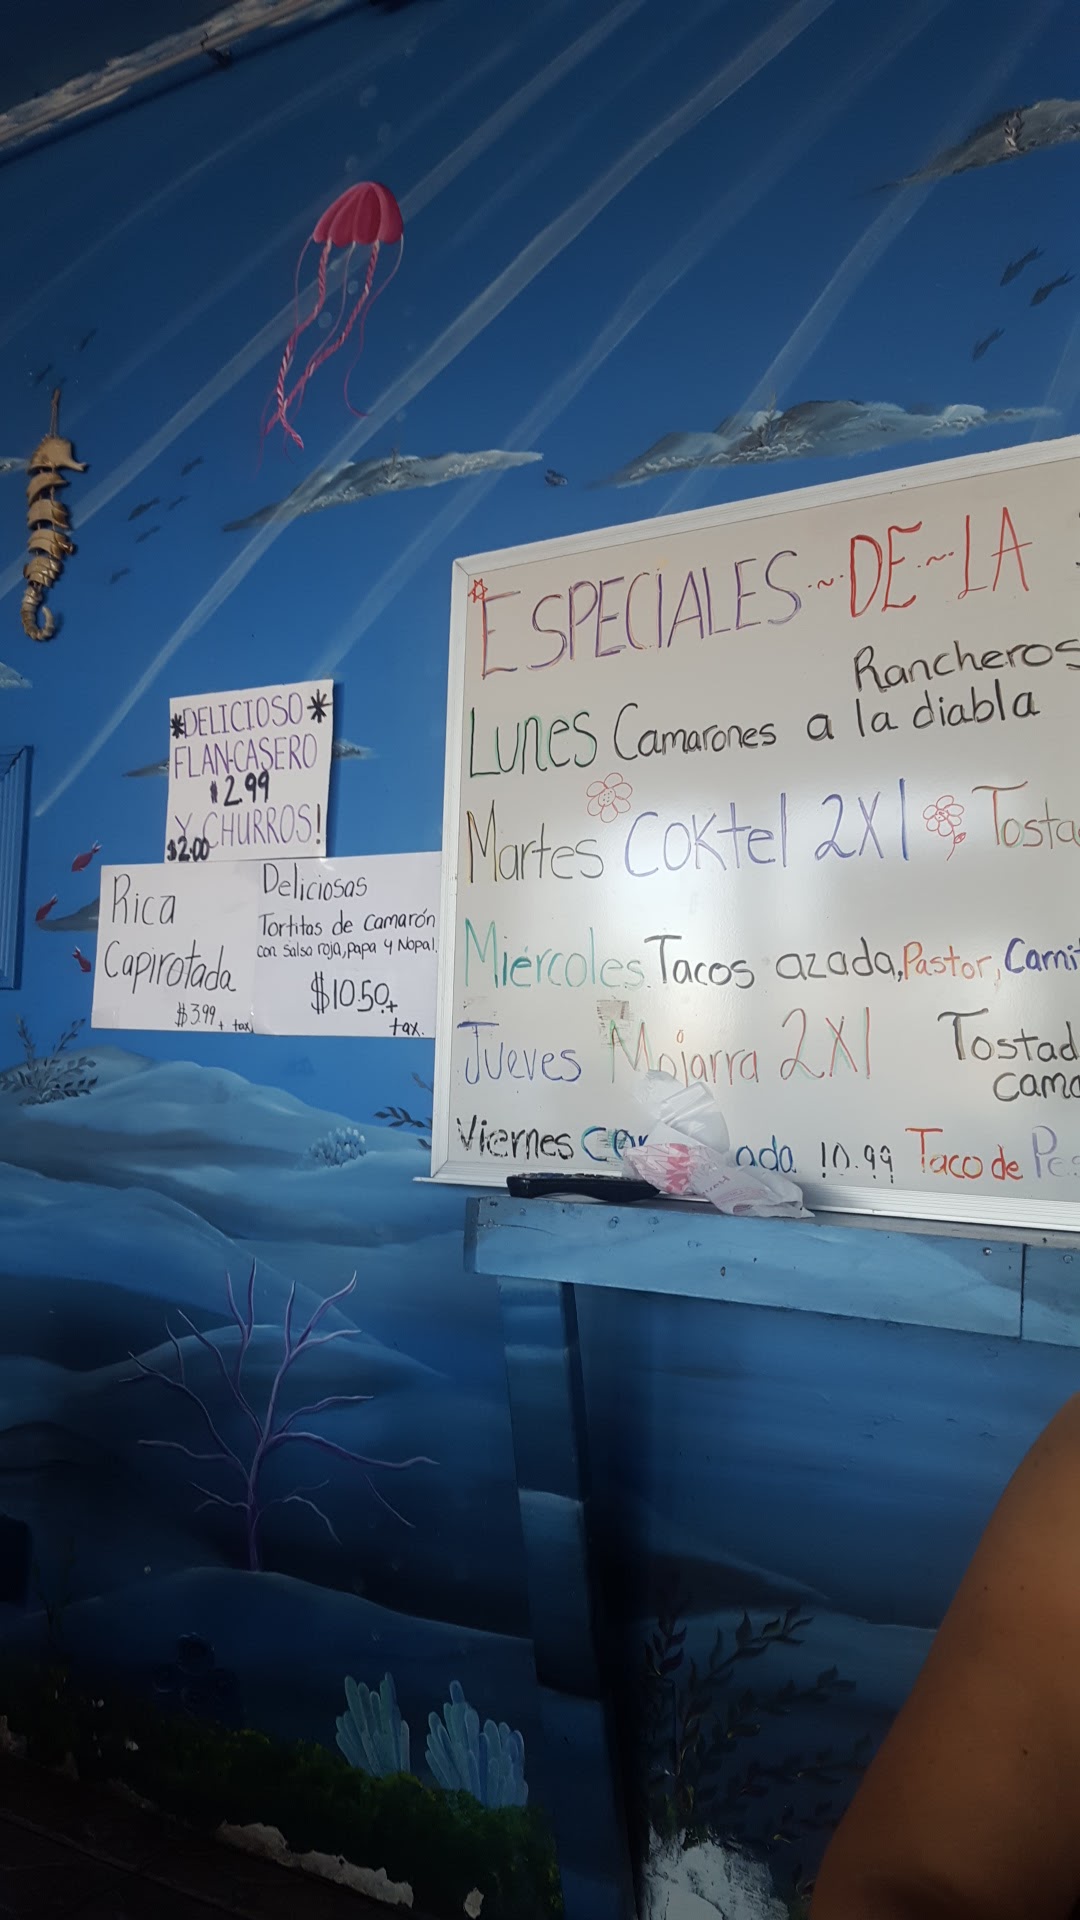 *DELICIOSO*
FLAN-CASERO
$2.99
Y CHURROS!
$2.00
Rica
Capirotada
$3.99 + tax
Deliciosas
Tortitas de Camarón
con salsa roja, papa y Nopal.
$10.50 +
tax.
ESPECIALES DE LA
Rancheros
Lunes Camarones a la diabla
Martes COKtel 2X1
Miércoles Tacos azada, Pastor,
Jueves Mojarra 2X1
cama
Viernes 10.99 Taco de